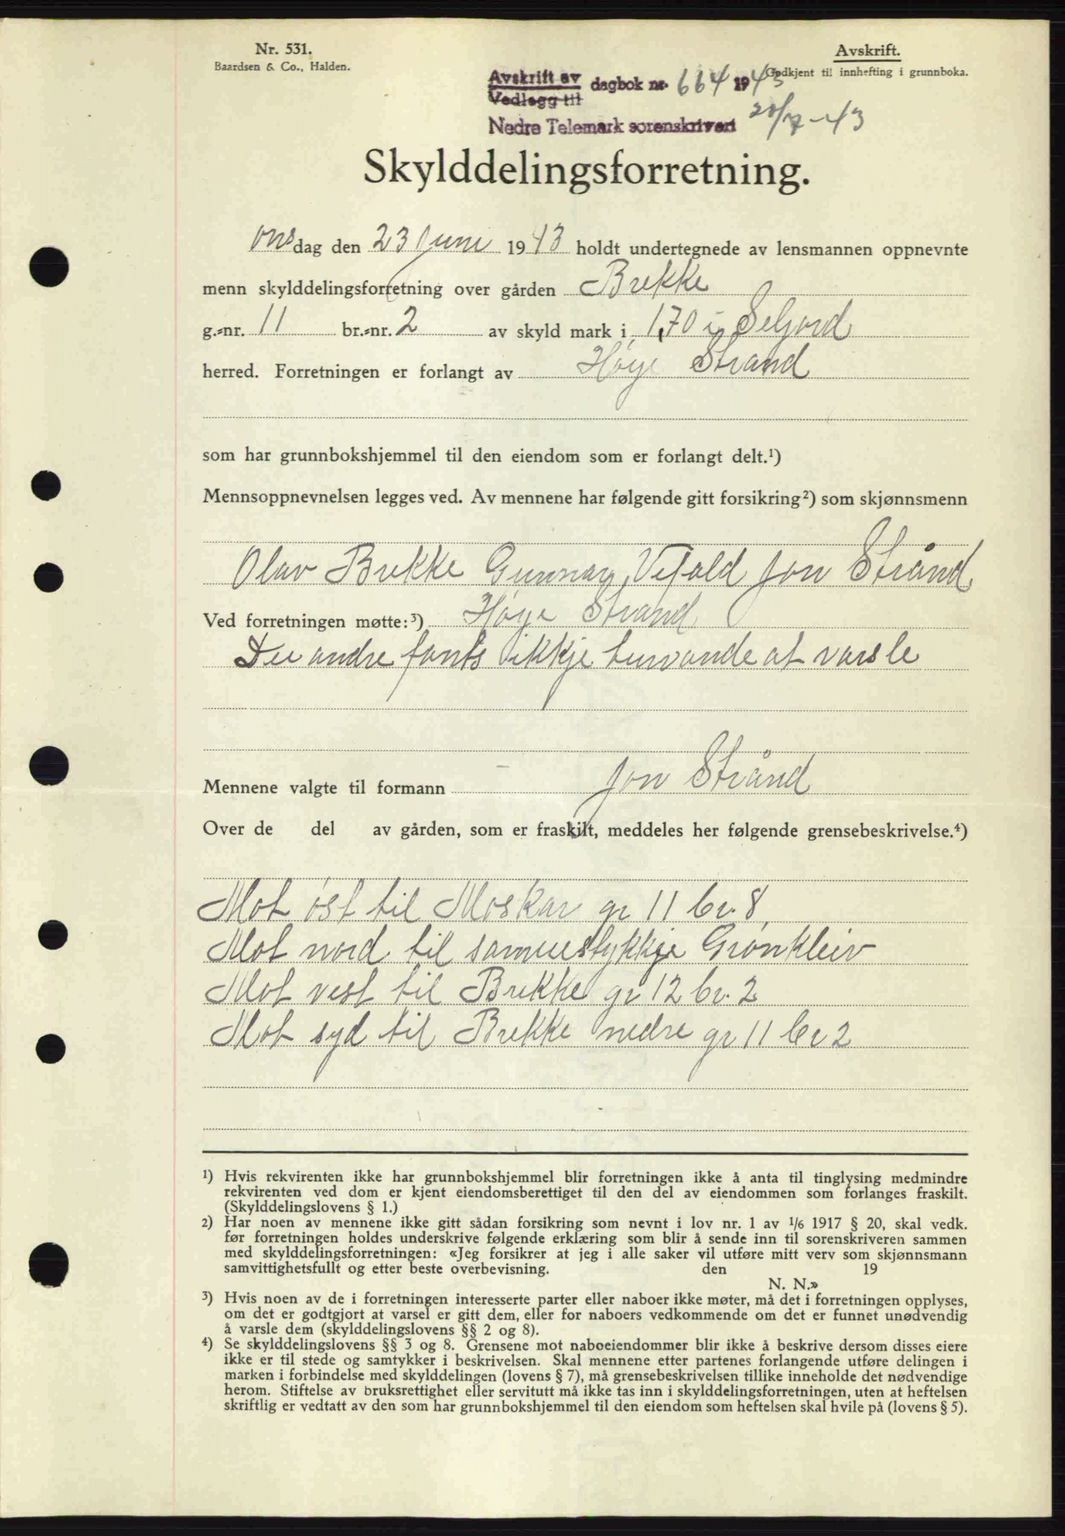 Nr. 531.
Baardsen & Co., Halden.
Avskrift.
Godkjent til innhefting i grunnboka.
Avskrift av
Vedlegg til
dagbok nr. 664 1943
Nedre Telemark sorenskriveri
20/7-43
Skylddelingsforretning.
onsdag den 23 juni 1943 holdt undertegnede av lensmannen oppnevnte
menn skylddelingsforretning over gården Brekke
g.-nr. 11 br.-nr. 2 av skyld mark 1,70 i Seljord
herred. Forretningen er forlangt av Høye Strand
som har grunnbokshjemmel til den eiendom som er forlangt delt.¹)
Mennsoppnevnelsen legges ved. Av mennene har følgende gitt forsikring²) som skjønnsmenn
Olav Brekke Gunnar Vefald Jon Strånd
Ved forretningen møtte:³) Høye Strand
Dei andre fants ikkje turvande at varsle
Mennene valgte til formann Jon Strånd
Over de del av gården, som er fraskilt, meddeles her følgende grensebeskrivelse.⁴)
Mot øst til Moskar gr 11 br. 8,
Mot nord til sameiestykkje Grønkleiv
Mot vest til Brekke gr 12 br. 2
Mot syd til Brekke nedre gr 11 br 2
¹) Hvis rekvirenten ikke har grunnbokshjemmel blir forretningen ikke å anta til tinglysing medmindre
rekvirenten ved dom er kjent eiendomsberettiget til den del av eiendommen som forlanges fraskilt.
(Skylddelingslovens § 1.)
²) Har noen av mennene ikke gitt sådan forsikring som nevnt i lov nr. 1 av 1/6 1917 § 20, skal vedk.
før forretningen holdes underskrive følgende erklæring som blir å sende inn til sorenskriveren sammen
med skylddelingsforretningen: «Jeg forsikrer at jeg i alle saker vil utføre mitt verv som skjønnsmann
samvittighetsfullt og etter beste overbevisning. den 19
N. N.»
³) Hvis noen av de i forretningen interesserte parter eller naboer ikke møter, må det i forretningen opplyses,
om det er godtgjort at varsel er gitt dem, eller for naboers vedkommende om det er funnet unødvendig
å varsle dem (skylddelingslovens §§ 2 og 8).
⁴) Se skylddelingslovens §§ 3 og 8. Grensene mot naboeiendommer blir ikke å beskrive dersom disses eiere
ikke er til stede og samtykker i beskrivelsen. Skal mennene etter partenes forlangende utføre delingen i
marken i forbindelse med skylddelingen (lovens § 7), må grensebeskrivelsen tillike inneholde det nødvendige
herom. Stiftelse av bruksrettighet eller servitutt må ikke tas inn i skylddelingsforretningen, uten at heftelsen
skriftlig er vedtatt av den som har grunnbokshjemmel til den eiendom som heftelsen skal hvile på (lovens § 5).